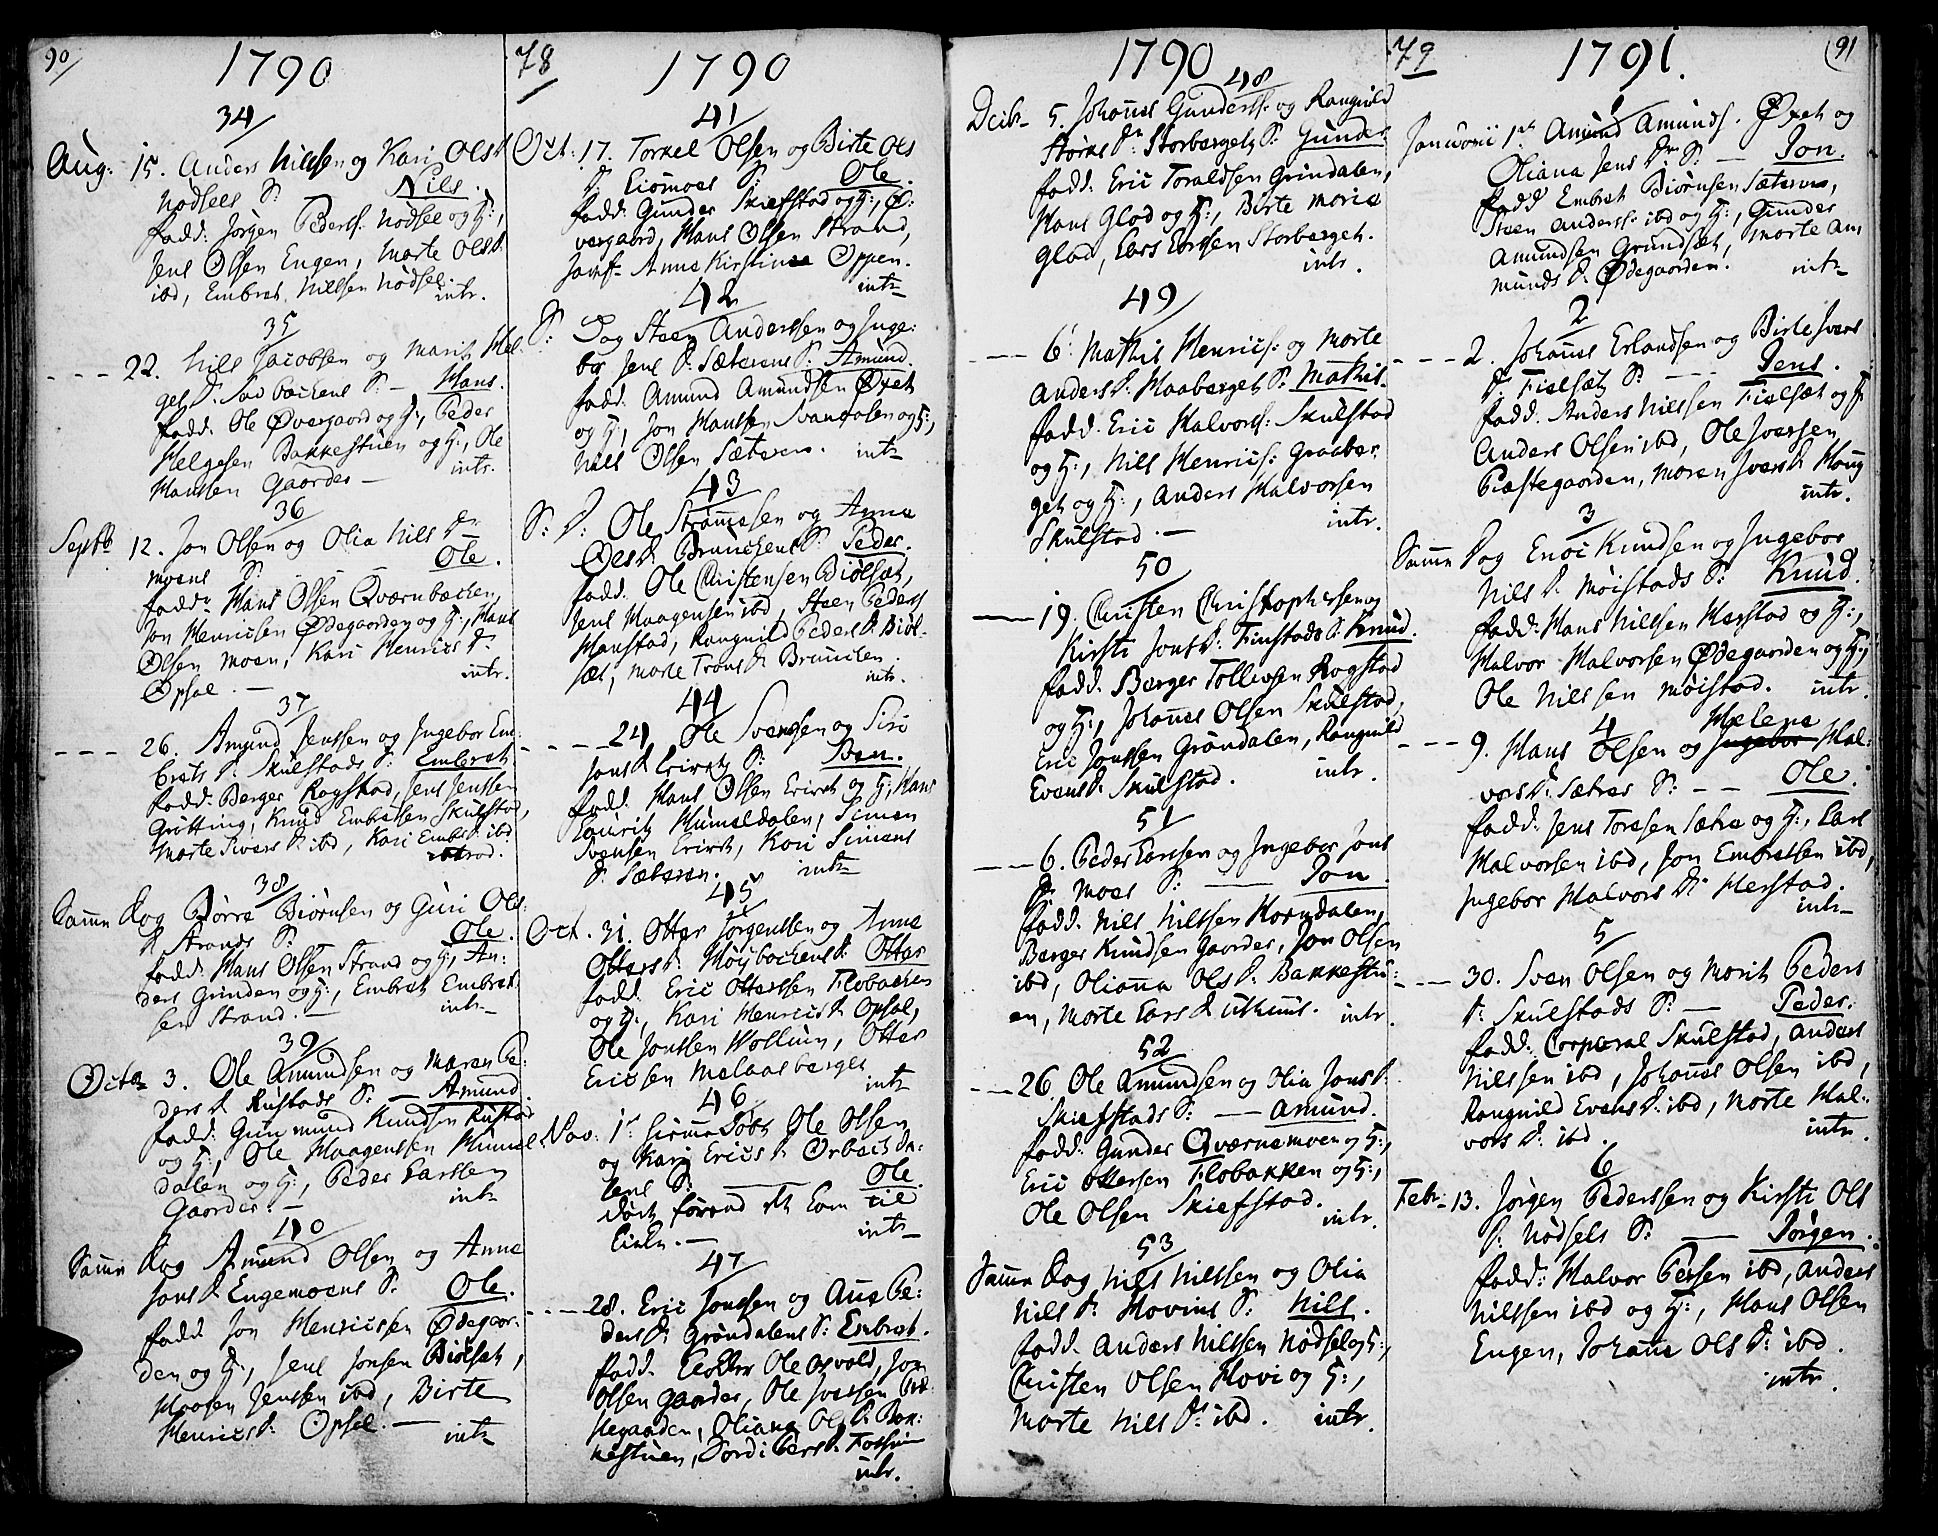 90
1790
34
Aug: 15. Anders Nilssen og Kari Olsd
Nodsels S: Nils.
fadd: Jørgen Pederss. Nodsel og H:,
Jens Olsen Engen, Marte Olsd.
ibd, Embret Nilssen Nodsel.
intr.
35
--- 22. Nils Jacobsen og Marit Hel-
ges D. bachens S: — Hans.
fadd: Ole Øvergaard og H:, Peder
Helgesen Bakkestuen og H:, Ole
Hanssen Gaarder — intr.
36
Septb 12. Jon Olsen og Olia Nils Dr
Moens S: Ole.
faddr Hans Olsen Qværnbæchen,
Jon Henricsen Ødegaarden og H:, Hans
Olsen Moen, Kari Henrics Dr
Opsal. — intr.
37
--- 26. Amund Jenssen og Ingebor Em-
brets D. Skulstads S: Embret
fadd: Berger Rogstad, Jens Jenssen
Grøtting, Knud Embretsen Skulstad,
Marte Ivers D. ibd, Kari Embr. D. ibd
introd.
38
Samm Dag Børre Biørnsen og Guri Ols:
D. Strands S: Ole.
fadd: Hans Olsen Strand og H:, An-
ders Grinden og H:, Embret Embret-
sen Strand. — intr.
39
Octbr 3. Ole Amundsen og Maren Pe-
ders D. Rustads S: — Amund
fadd: Gunmund Knudsen Rustad
og H:, Ole Haagensen Hummel
dalen og H:, Peder Larssen
Gaarder. — intr
40
Samm Dag Amund Olsen og Anne
Jons D. Engemoens S: Ole.
fadd. Jon Henricsen Ødegaar-
den og H:, Jens Jonsen Biølset,
Haagen Jenssen ibd, Birte
Henrics D. Opsal. — intr
78
1790
41
Oct: 17. Torkel Olsen og Birte Ols
D. Eismoes S: Ole.
fadd: Gunder Skiefstad og H:, Ø-
vergaard, Hans Olsen Strand,
Jomf. Anne Kirstine Oppen.
intr
42
S: Dag Steen Anderssen og Inge-
bor Jens D. Sæterens S: Amund.
fadd. Amund Amundsen Øxet
og H:, Jon Hanssen Svandalen og H:,
Nils Olsen Sæteren. intr
43
S: D: Ole Stramesen og Anna
Oles D. Brunchens S: Peder.
fadd. Ole Christensen Biølset,
Jens Haagensen ibd, Steen Peders
Hanstad, Rangnild Peders D. Biøl-
set, Marte Trons D. Brunchen.
intr.
44
--- 24. Ole Svensen og Siri
Jons D. S: Sven.
fadd. Hans Olsen og H:, Hans
Laurits Humeldalen, Simen
Svensen , Kari Simens
D. Sæteren. intr
45
Oct. 31. Otter Jørgenssen og Anne
Otters D. Moesbachens S: Otter
fadd. Eric Otterssen Flobachen
og H:, Kari Henrics D. Opsal,
Ole Jonssen Hollum, Otter
Ericsen Melaasberget
intr
46
Nov: 1r hiemmedøbt Ole Olsen
og Kari Erics D. Da-
lens S: — Ole.
død forend det kom til
Kirken. — intr
47
---28. Eric Jonssen og Ane Pe-
ders D. Grøndalens S: Embret.
fadd. Ole Osvold, Jon
Olsen Gaarder, Ole Ivessen Præ-
stegaarden, Oliana Ols D. Bak-
kestuen, Jordi Pers D. Fossum
intr.
1790
48
Dcibr 5. Johannes Gunderss: og Rangnild
Størks Dr. Storbergets S: Gunder
fadd. Eric Toraldsen Grindalen,
Hans Glad og H:, Birte Marie
Glad, Lars Larssen Storberget.
intr.
49
--- 6. Mathis Henrics: og Marte
Anders D. Haaberget S: Mathis.
fadd. Eric Halvorss: Skulstad
og H:, Nils Henrics: Graaber-
get og H:, Anders Halvorsen
Skulstad. — intr.
50
--- 19. Christen Christophersen og
Kirsti Jons D. Finstads S: Knud.
fadd. Berger Tollevsen Rogstad
og H:, Johannes Olsen Skulstad,
Eric Jonssen Grøndalen, Rangnild
Evens D. Skulstad. intr.
51
--- 6. Peder Larssen og Ingebor Jons
D. Moes S: — Jon.
fadd. Nils Nilssen Horndalen,
Berger Knudsen Gaarder, Jon Olsen
ibd, Olianna Ols D. Bakkestu-
en, Marte Lars D. Uthuus. intr.
52
--- 26 Ole Amundsen og Olia Jons D.
Skiefstads S: — Amund.
fadd. Gunder Qværnemoen og H:,
Eric Ottersen Flobakken og H:,
Ole Olsen Skiefstad. intr.
53
Samm Dag Nils Nilssen og Olia
Nils D. Hovins S: Nils.
fadd. Anders Nilssen Nodsel og H:,
Christen Olsen Hovi og H:,
Marte Nils D. ibd. intr.
79
1791.
91
1
Januarii 1st Amund Amunds. Øxet og
Oliana Jens Dr S: — Jon.
fadd Embret Biørnsen Sæteren,
Steen Anderss. ibd og H:, Gunder
Amundsen Grundset, Marte Am
munds D. Ødegaarden. intr
2
--- 2. Johannes Erlandsen og Birte Ivers
D. Fielset S: --- Jens.
fadd. Anders Nilssen Fielset og H
Anders Olsen ibd, Ole Iverssen
Præstegaarden, Maren Ivers D. Haug
intr.
3
Samm Dag Enoc Knudsen og Ingebor
Nils D. Moistads S: Knud.
fadd: Hans Nilssen Herstad og H:,
Halvor Halvorsen Ødegaarden og H:,
Ole Nilssen Moistad. intr.
4
--- 9. Hans Olsen og Ingebor Helene Hal-
vors D. Sætres S: -- Ole.
fadd: Jens Toresen Sætre og H:, Lars
Halvorsen ibd, Jon Embretsen ibd,
Ingebor Halvors Dr Herstad.
intr
5
--- 30. Sven Olsen og Marit Peders
D. Skulstads S: — Peder.
fadd: Corporal Skulstad, Anders
Nilssen ibd, Johannes Olsen ibd,
Rangnild Evens D. ibd, Marte Hal-
vors D. ibd. intr.
6
Febr: 13. Jørgen Pederssen og Kirsti Ols
D. Nodsels S: — Jørgen.
fadd: Halvor Persen ibd, Anders
Nilssen ibd og H:, Hans Olsen
Engen, Johanne Ols D: ibd.
intr.